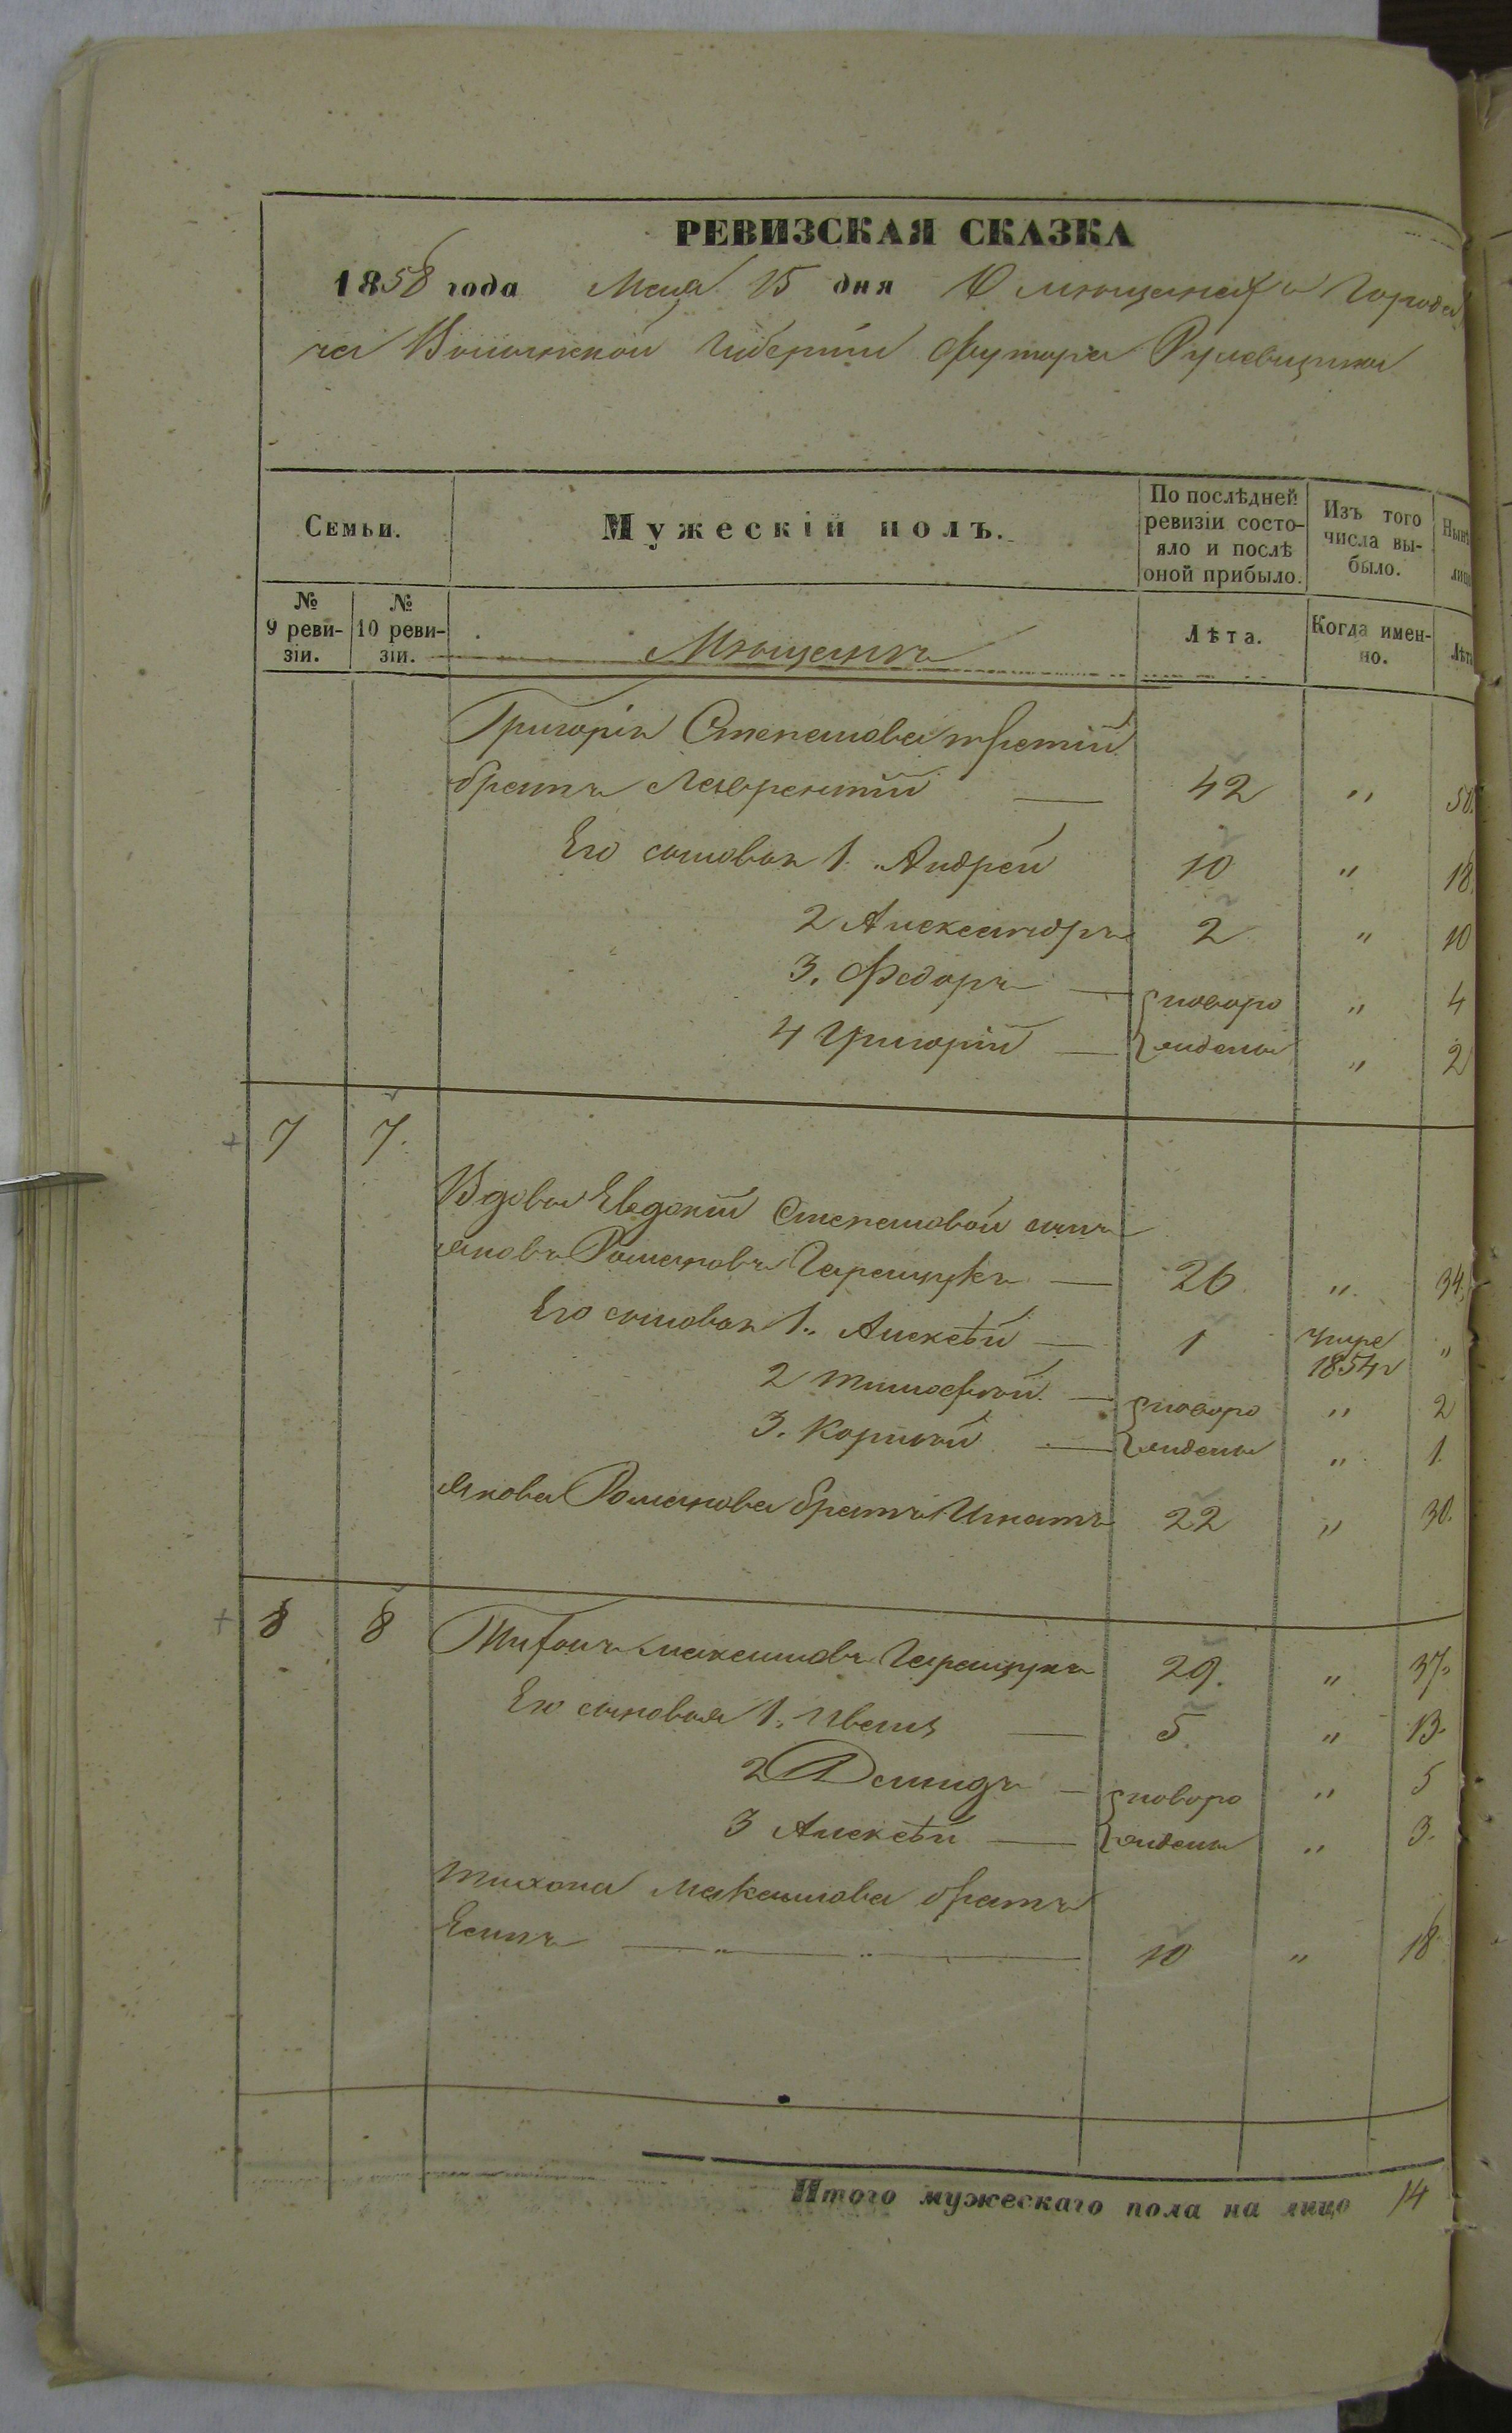 РЕВИЗСКАЯ СКАЗКА
1858 года Мая 15 дня О мещанахъ Города
Волынской Губерніи Футора
Семьи.
Мужескій полъ.
По послѣдней ревизіи состо-
яло и послѣ оной прибыло.
Изъ того числа вы-
было.
№ 9 реви-
зіи.
№ 10 реви-
зіи.
Мещанъ
Лѣта.
Когда имен-
но.
Григорія Степанова третій
братъ Лаврентій 42 " 50.
Его сыновья 1. Андрей 10 " 18.
2 Александръ 2 " 10
3. Федоръ новоро " 4
4 Григорій жидены " 2
7 7.
Вдовы Евдокіи Степановой сынъ
Яковъ Романовъ Геращукъ 26 " 34.
Его сыновья 1. Алексѣй 1 умре 1854 "
2 Тимофей новоро " 2
3. Корней жидены " 1.
Якова Романова братъ Игнатъ 22 " 30.
8 8 Тихонъ Максимовъ Геращукъ 29. " 37.
Его сыновья 1. Иванъ 5. " 13.
2 Демидъ новоро " 5
3 Алексѣй жидены " 3.
Тихона Максимова братъ
Есипъ 10 " 18
Итого мужескаго пола на лицо 14